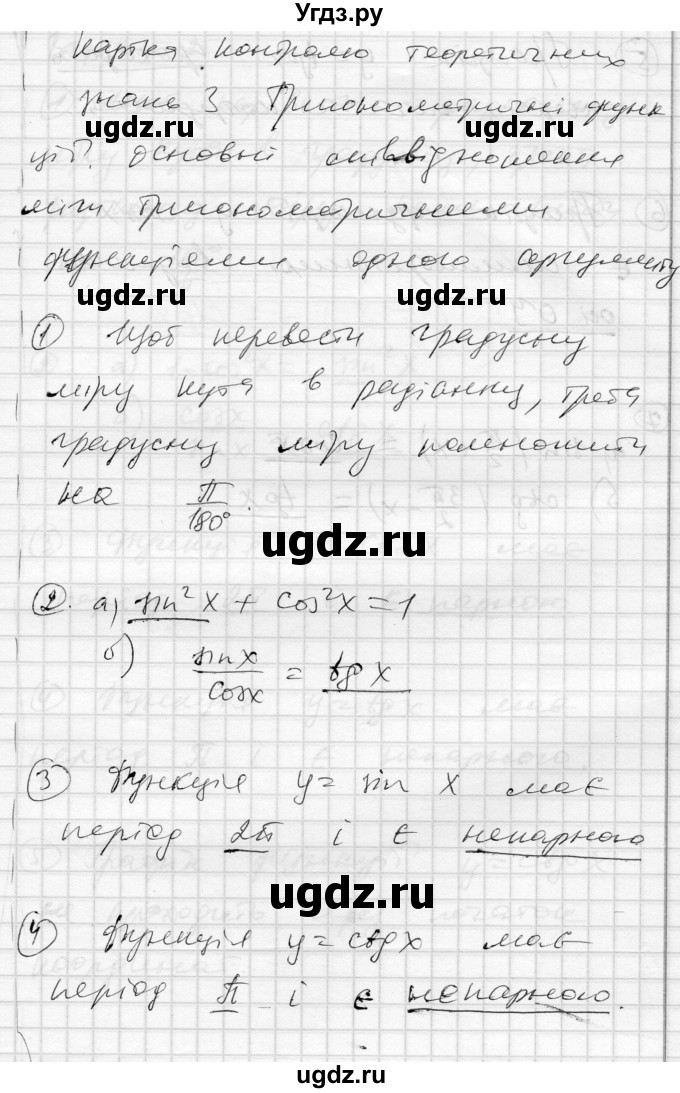 Угдз.ру
Картка контролю теоретичних
знань 3 Тригонометричні функ
ції. основні співвідношення
між тригонометричними
функціями одного аргументу
ugdz.ru ugdz.ru
ugdz.ru ugdz.ru
① Щоб перевести градусну
міру кута в радіанну, треба
градусну міру помножити
на π/180°.
ugdz.ru
②. а) sin²x + cos²x = 1
б) sinx/cosx = tgx
③ Функція y = sin x має
період 2π і є непарною
ugdz.ru
④ Функція y = ctgx має
період π і є непарною.
ugdz.ru